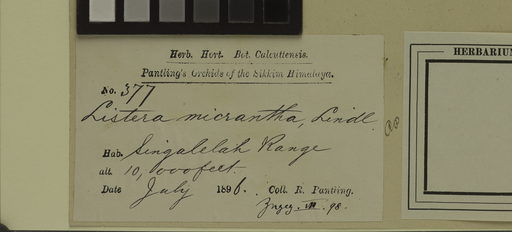 Herb. Hort. Bot. Calcuttensis.
Pantling's Orchids of the Sikkim Himalaya.
No. 377
Listera micrantha, Lindl.
Hab. Singalelah Range
alt. 10,000 feet.
Date July 1896. Coll. R. Pantling.
III. 98.
HERBARIUM